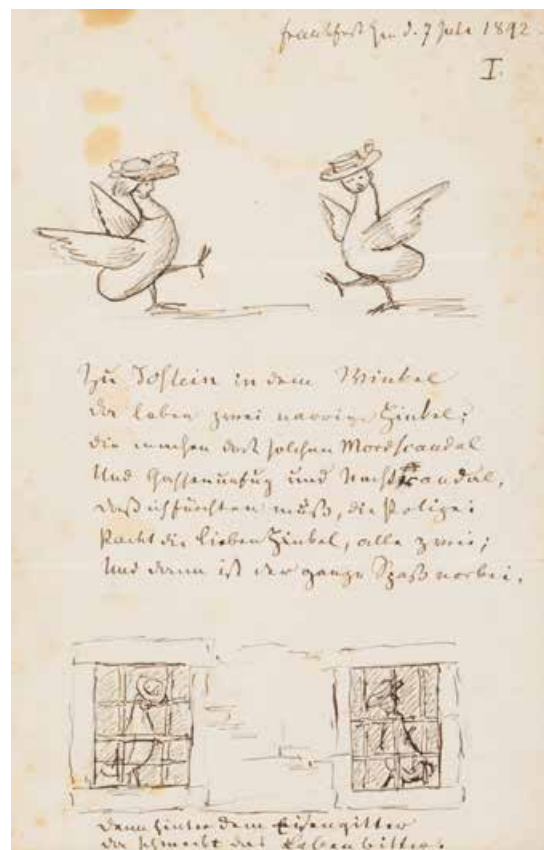 Frankfurt den d. 7 Juli 1892.
I.
Zu Idstein in dem Winkel
da leben zwei narrige Hinkel;
die machen dort solchen Mordscandal
Und Gassenunfug und Nachtscandal,
daß ich fürchten muß, die Polizei
Packt die lieben Hinkel, alle zwei;
Und dann ist der ganze Spaß vorbei,
Denn hinter dem Eisengitter
da schmeckt das Leben bitter.